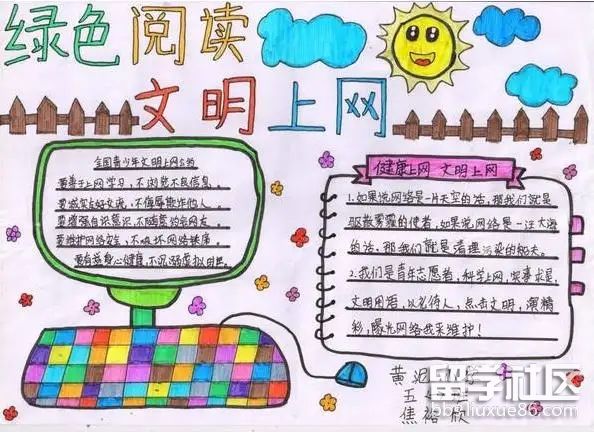 绿色阅读
文明上网
全国青少年文明上网公约
要善于上网学习，不浏览不良信息。
要诚实友好交流，不侮辱欺诈他人。
要增强自护意识，不随意约会网友。
要维护网络安全，不破坏网络秩序。
要有益身心健康，不沉溺虚拟时空。
健康上网 文明上网
1.如果说网络是一片天空的话，那我们就是
驱散雾霾的使者，如果说网络是一汪大海
的话，那我们就是清理污染的船夫。
2.我们是青年志愿者，科学上网，实事求是，
文明用语，以礼待人，点击文明，演精
彩，网络我来维护！
黄泥
五
焦裕欣
留学社区
bbs.liuxue86.com